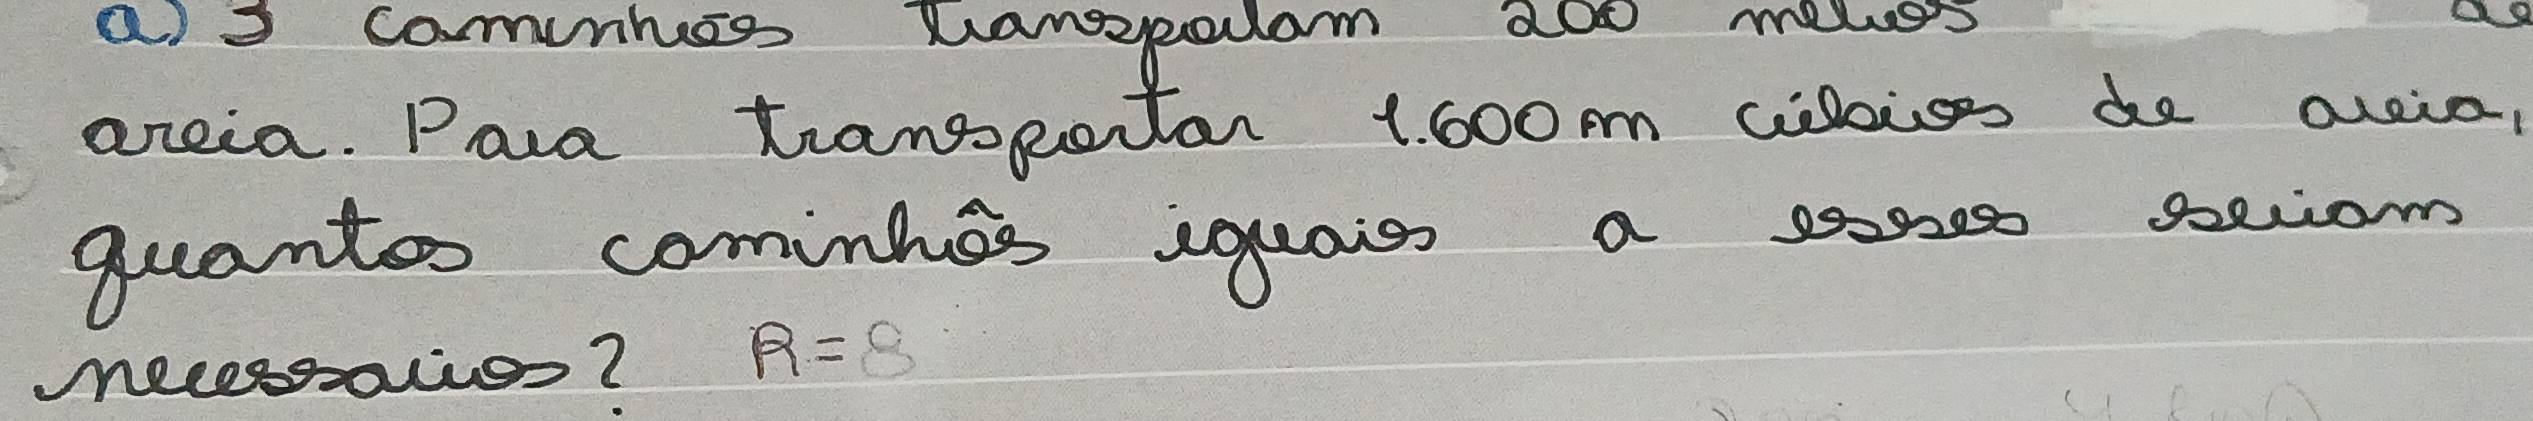 a) 3 caminhões transportam 200 metros de
areia. Para transportar 1.600m cúbicos de areia,
quantos caminhôes iguais a esses seriam
necessarios? R=8